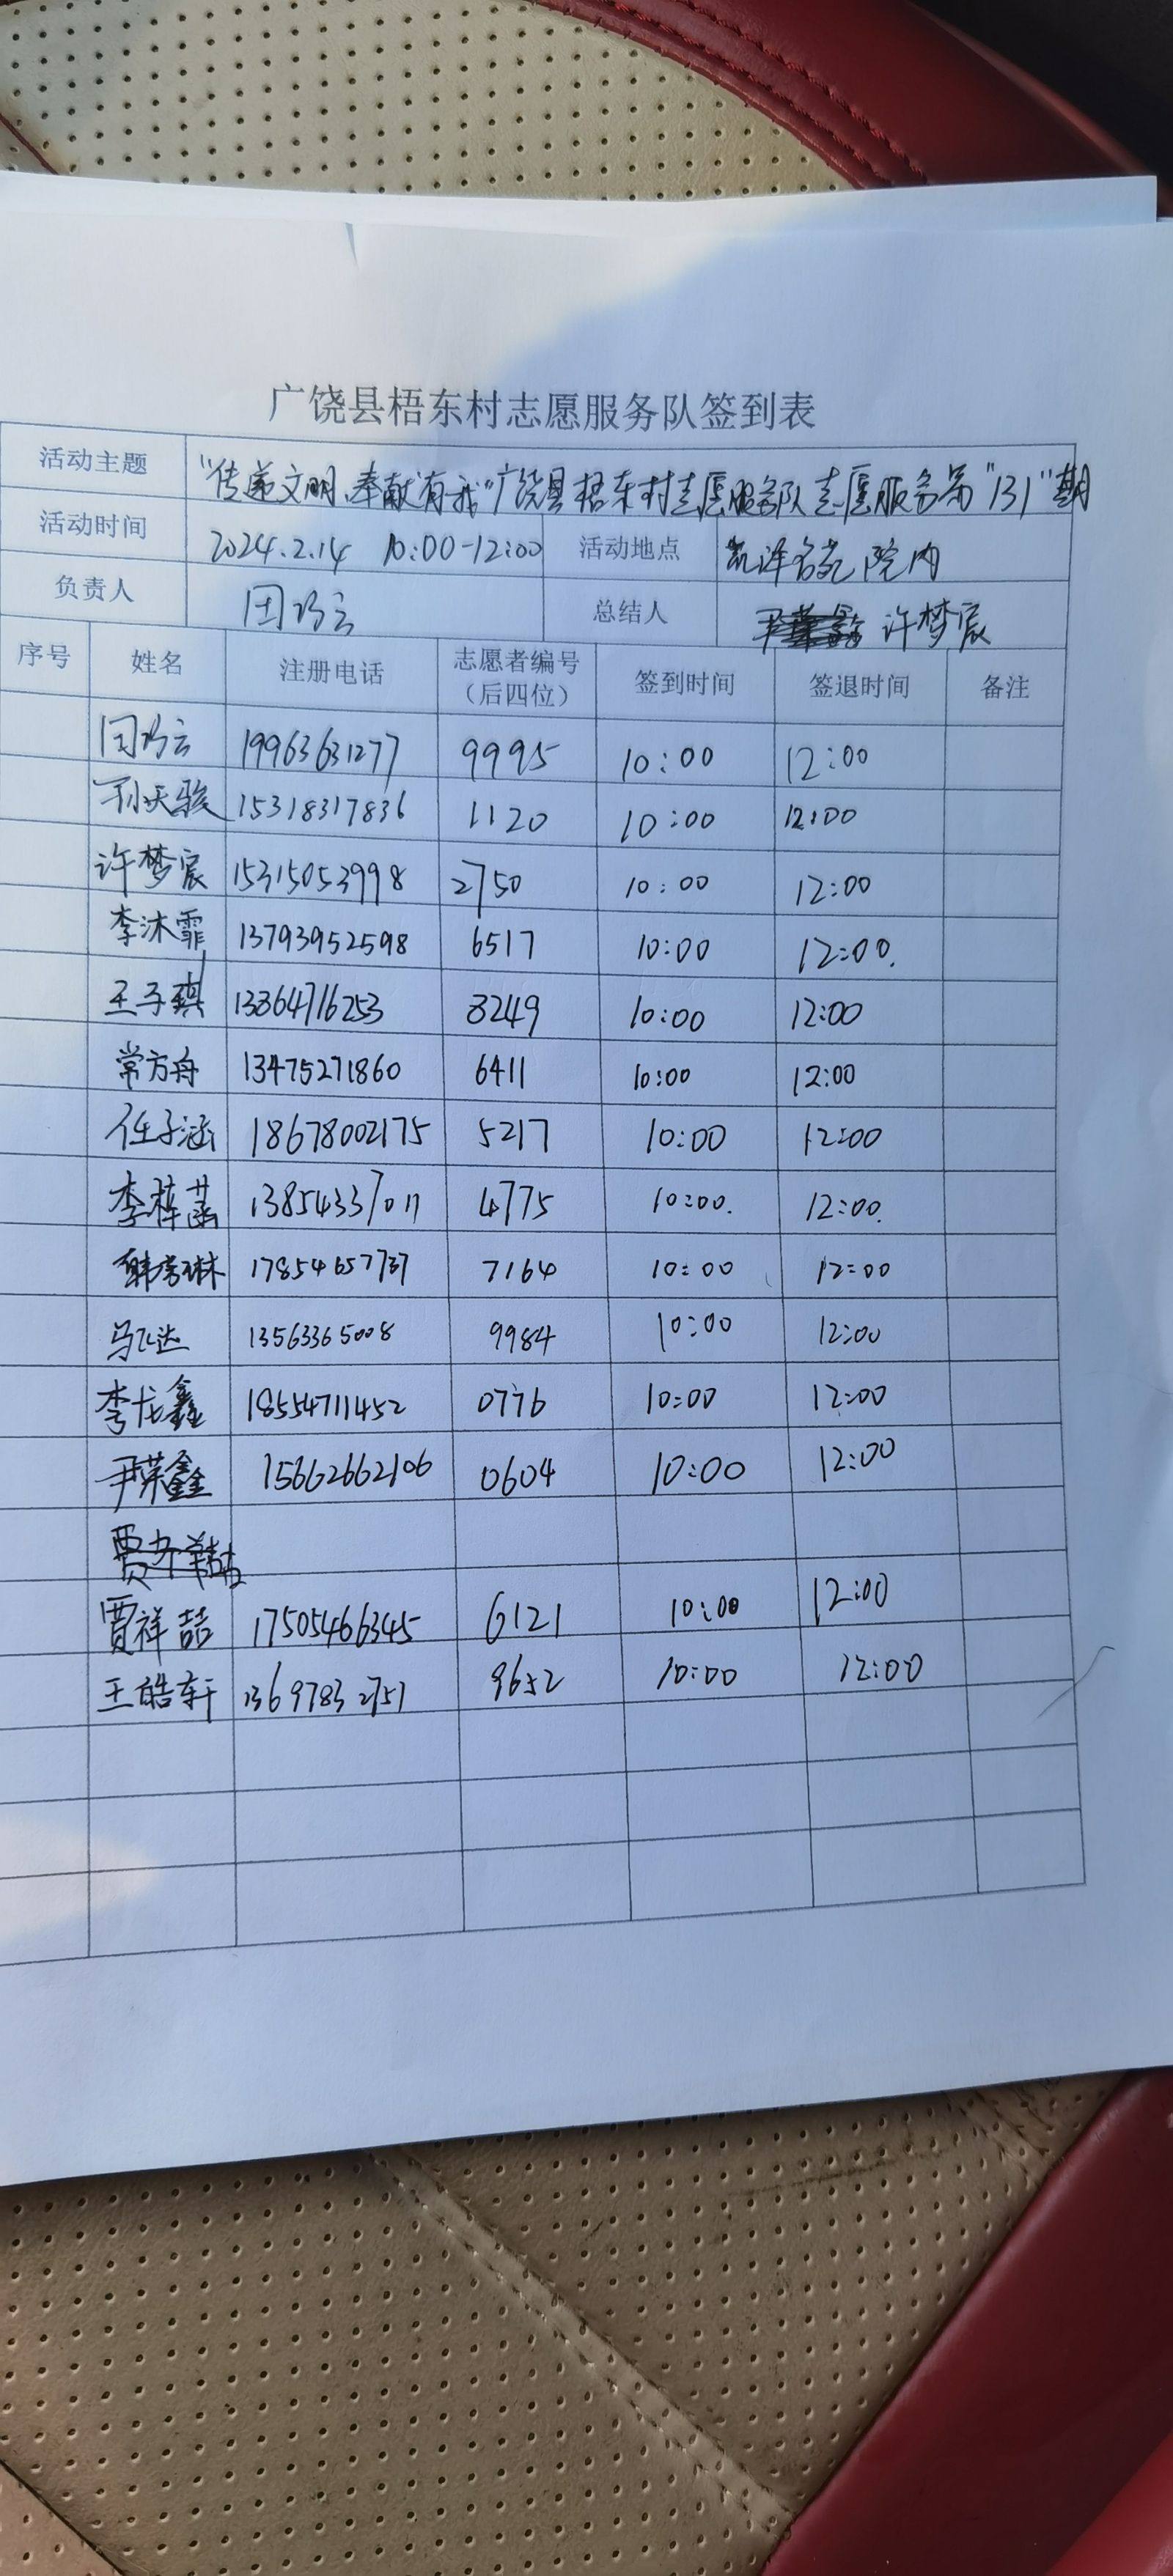 广饶县梧东村志愿服务队签到表
活动主题 "传递文明、奉献有我"广饶县梧东村志愿服务队志愿服务第"131"期
活动时间 2024.2.14 10:00-12:00 活动地点 凯泽名苑院内
负责人 总结人 许梦宸
序号 姓名 注册电话 志愿者编号（后四位） 签到时间 签退时间 备注
19963631277 9995 10:00 12:00
孙天骏 15318317836 1120 10:00 12:00
许梦宸 15315053998 2750 10:00 12:00
李沐霏 13793952598 6517 10:00 12:00.
王子琪 13864716253 8249 10:00 12:00
常方舟 13475271860 6411 10:00 12:00
任子涵 18678002175 5217 10:00 12:00
李梓菡 13854337011 4775 10:00. 12:00.
17854657737 7164 10:00 12:00
马飞达 13563365008 9984 10:00 12:00
李龙鑫 18554711452 0776 10:00 12:00
尹荣鑫 15662662106 0604 10:00 12:00
贾祥喆 17505466345 6121 10:00 12:00
王皓轩 13697832751 9652 10:00 12:00